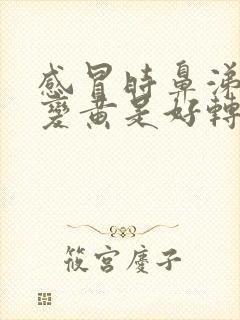 感冒時鼻涕
變黃是好轉
筱宮慶子